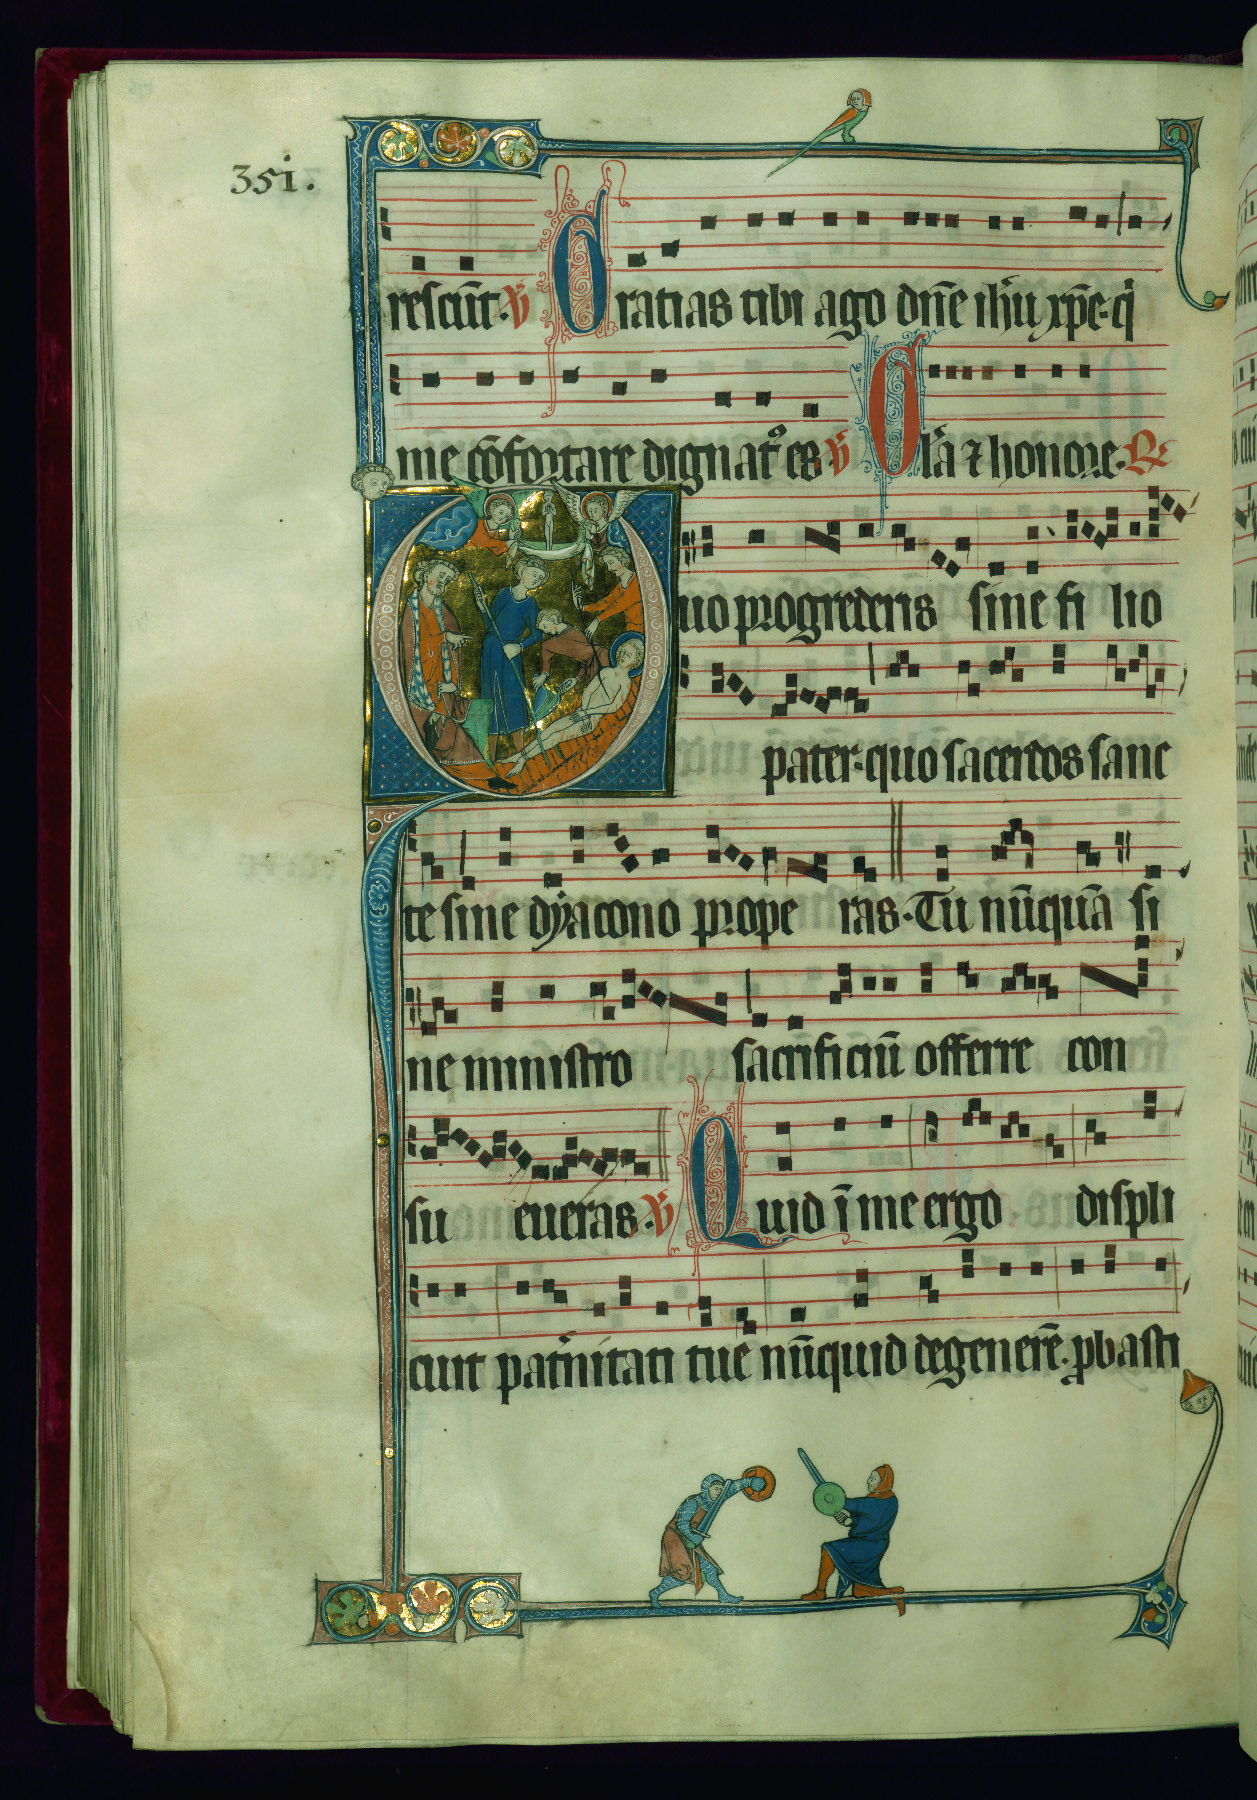 35i.
rescūt. ℣ Gratias tibi ago dn̄e ih̄u xp̄e. q̇
me cōfortare dignat᷒ es ℣ Gl̄a ⁊ honore. ℟
Quo progrederis sine fi lio
pater. quo sacerdos sanc
te sine dyacono prope ras. Tu nūquā si
ne ministro sacrificiū offerre con
su eueras. ℣ Quid ī me ergo displi
cuit pat̄nitati tue nūquid degenerē. ꝓbasti